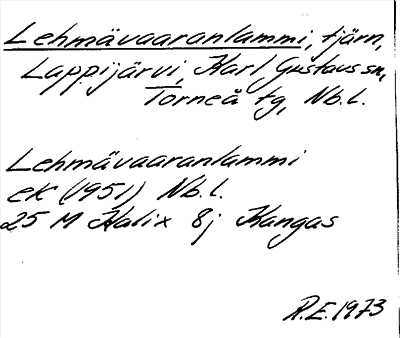 Lehmävaaranlammi, tjärn,
Lappijärvi, Karl Gustavs sn,
Torneå tg, Nb.l.
Lehmävaaranlammi
ek (1951) Nb.l.
25 M Kalix 8j Kangas
R.E. 1973